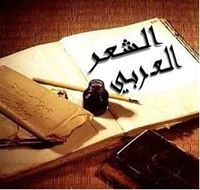 الشعر
العربي